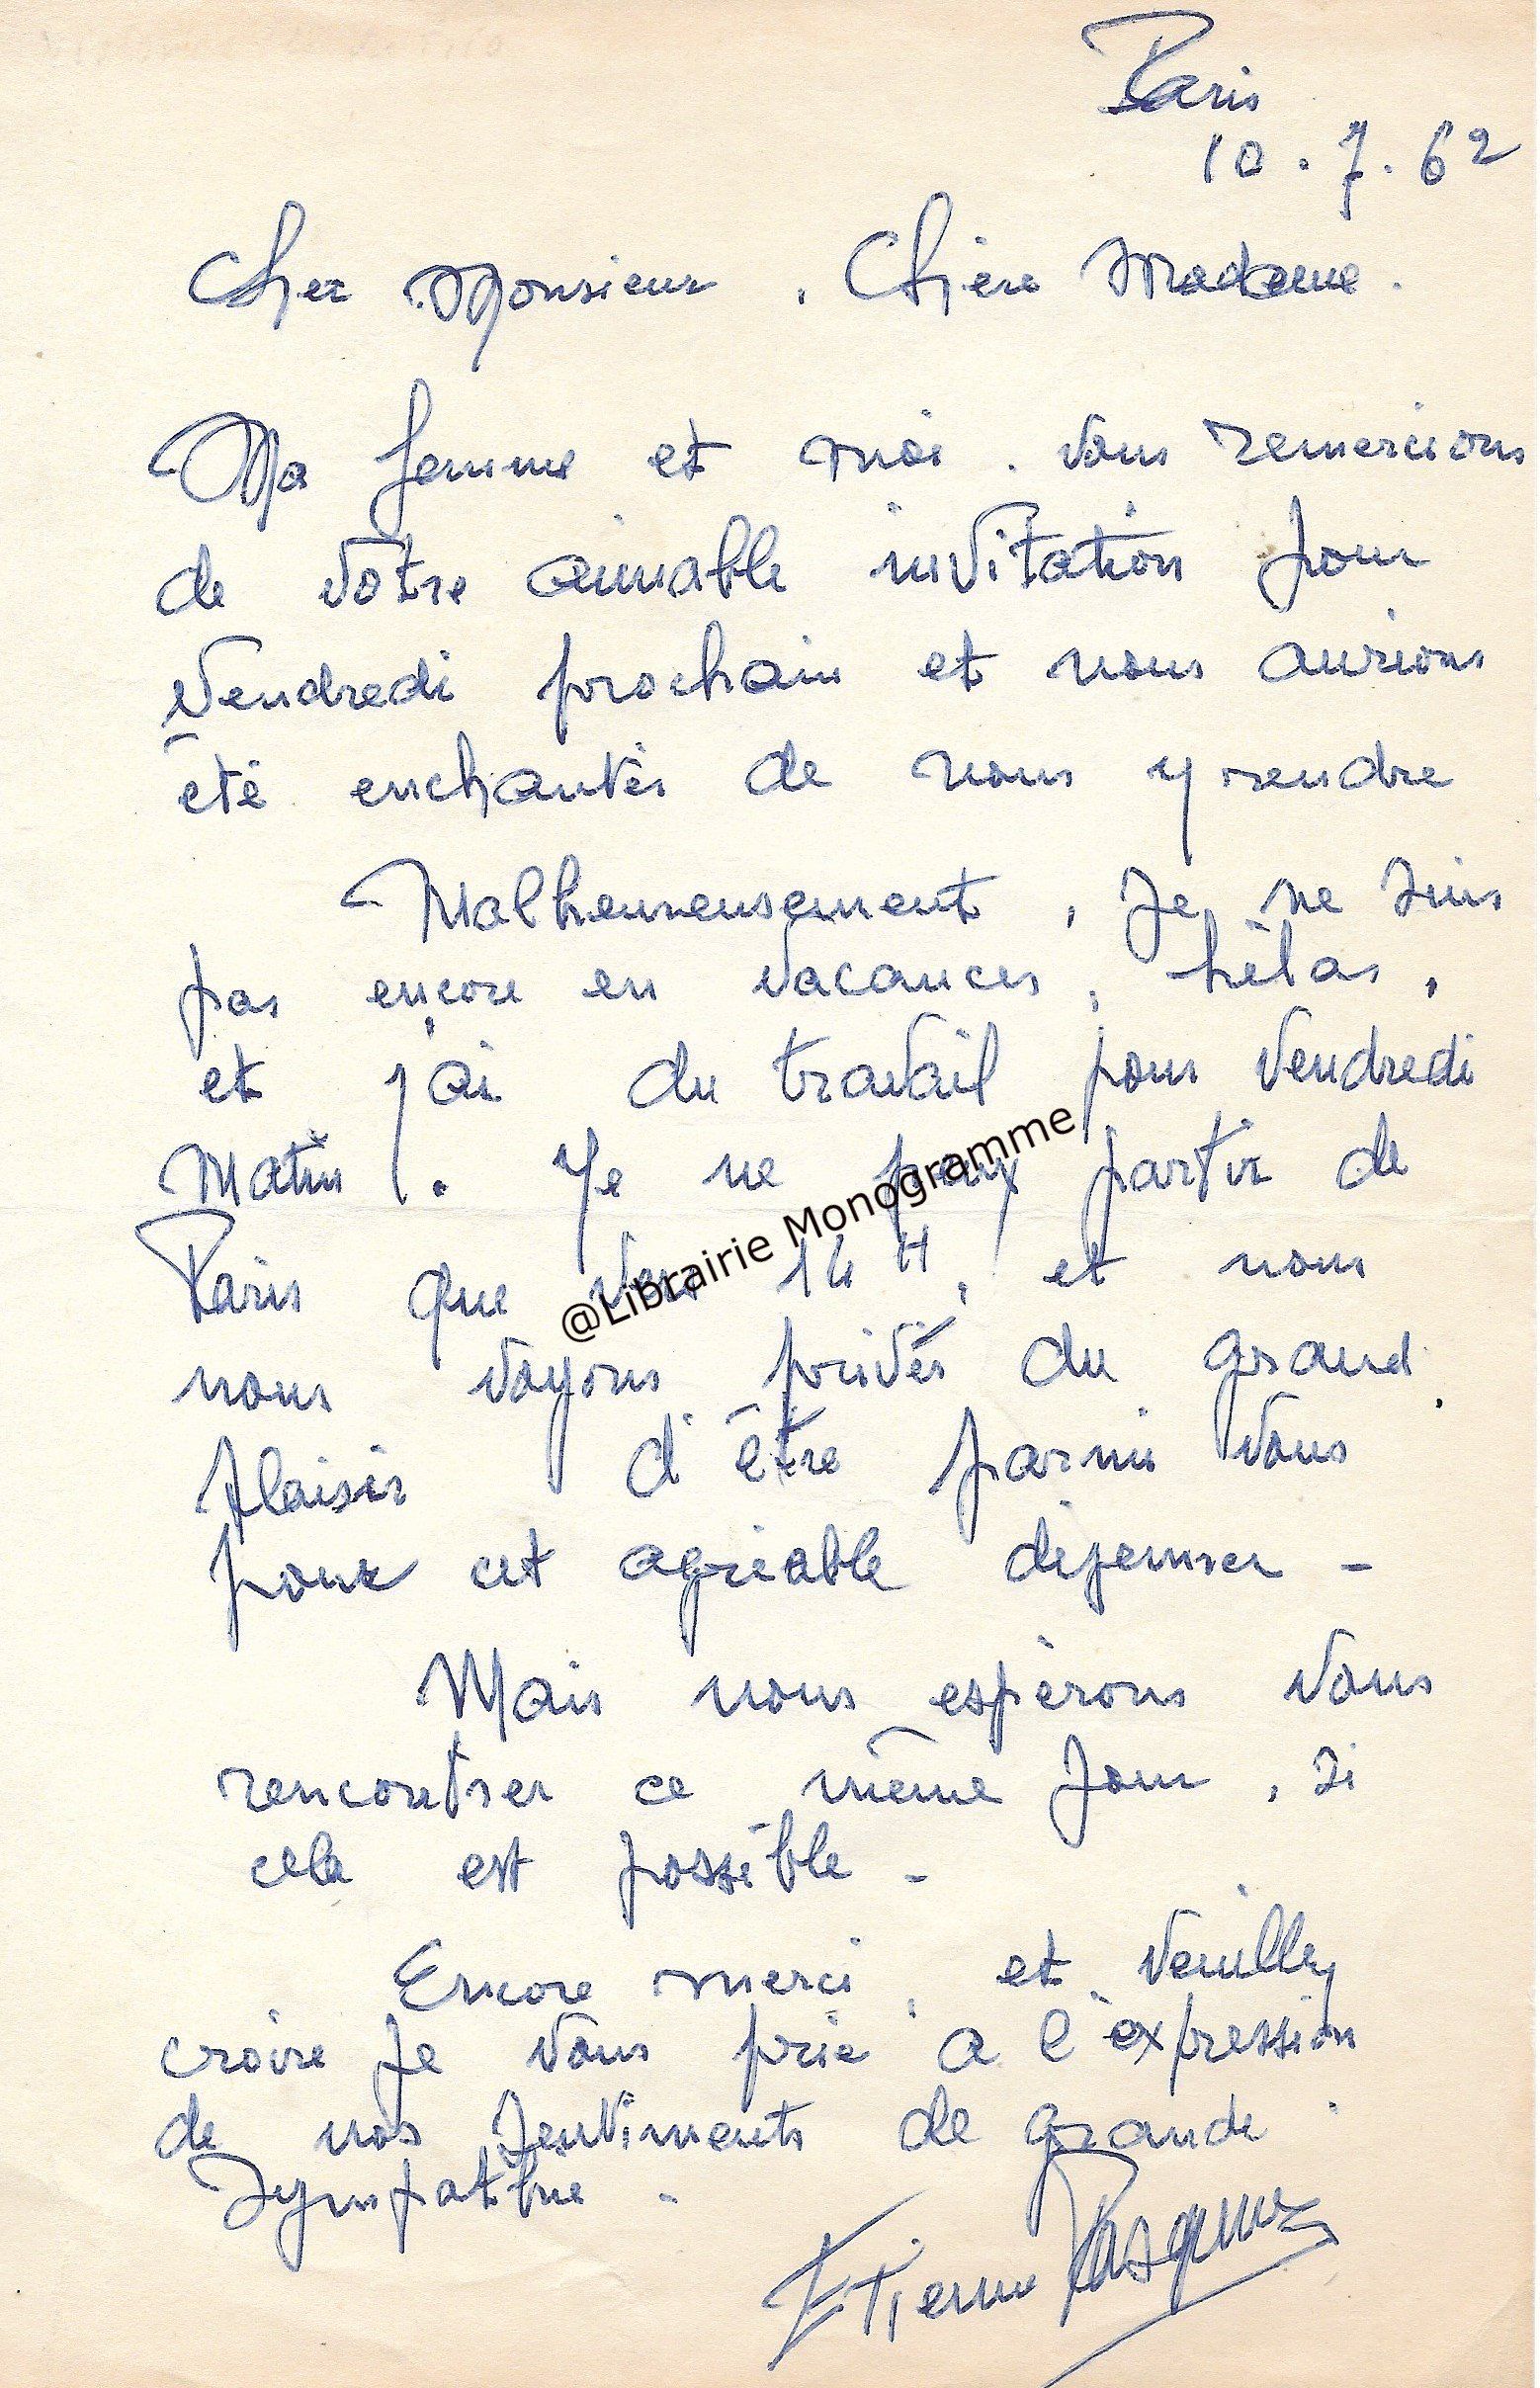 Paris
10.7.62
Cher Monsieur, Chère Madame.
Ma femme et moi, vous remercions
de votre aimable invitation pour
Vendredi prochain et nous aurions
été enchantés de nous y rendre
Malheureusement, je ne suis
pas encore en vacances, hélas,
et j'ai du travail pour Vendredi
Matin. Je ne peux partir de
Paris que vers 14 H, et nous
nous voyons privés du grand
plaisir d'être parmi vous
pour cet agréable déjeuner -
Mais nous espérons vous
rencontrer ce même jour, si
cela est possible -
Encore merci, et veuillez
croire je vous prie a l'expression
de nos sentiments de grande
Sympathie -
Etienne Pasquier
@Librairie Monogramme